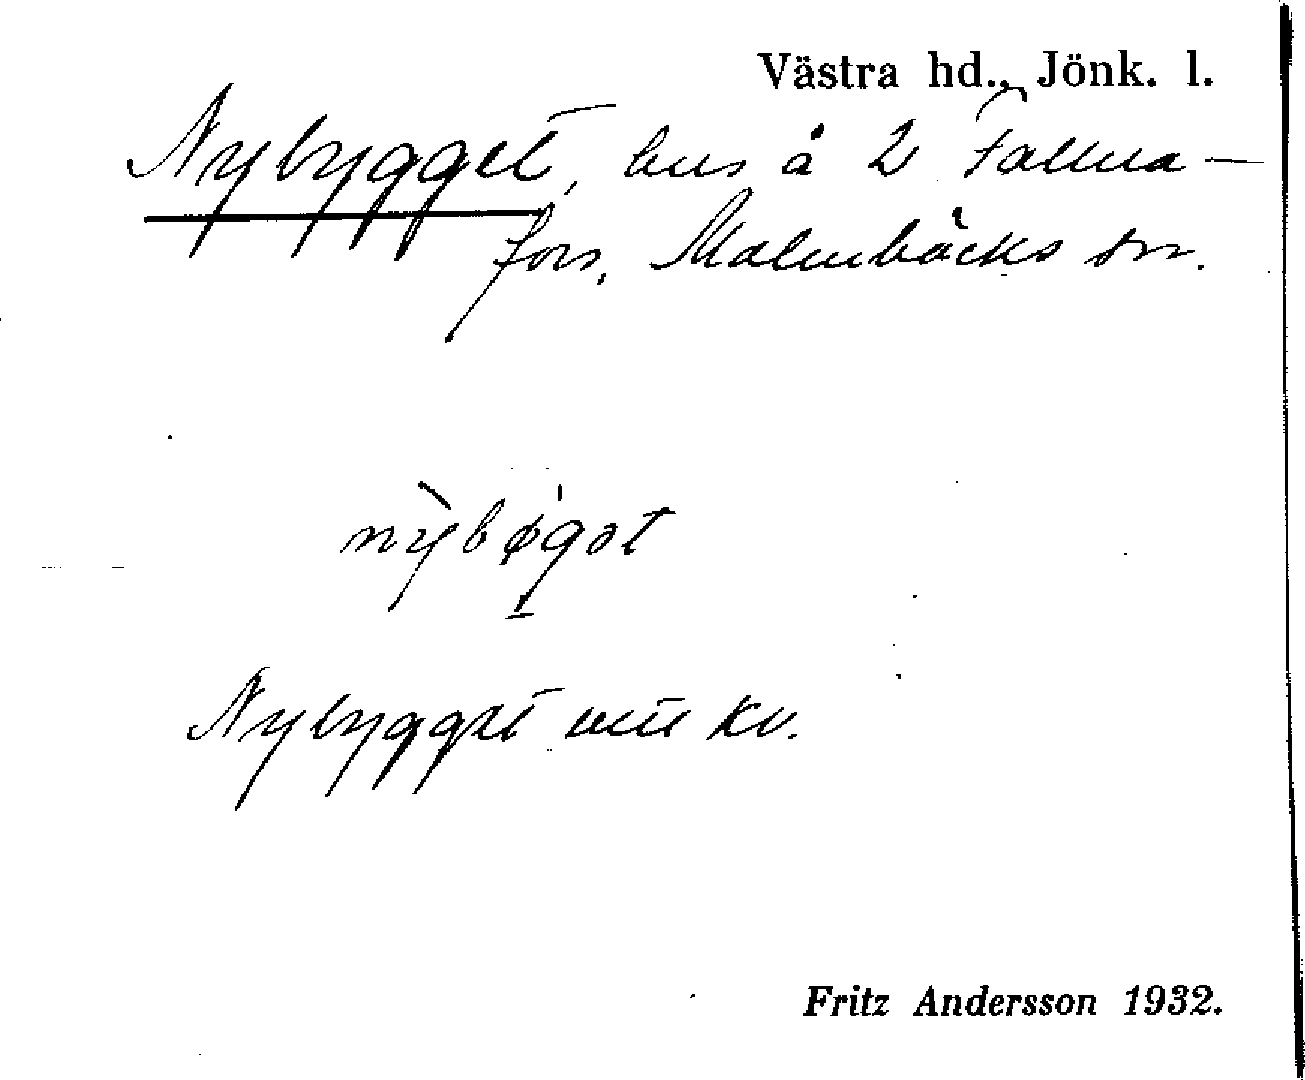 Västra hd., Jönk. l.
Nybygget, hus å 2 Fallna-
fors, Malmbäcks sn.
nỳbøgət
Nybygget utu kv.
Fritz Andersson 1932.